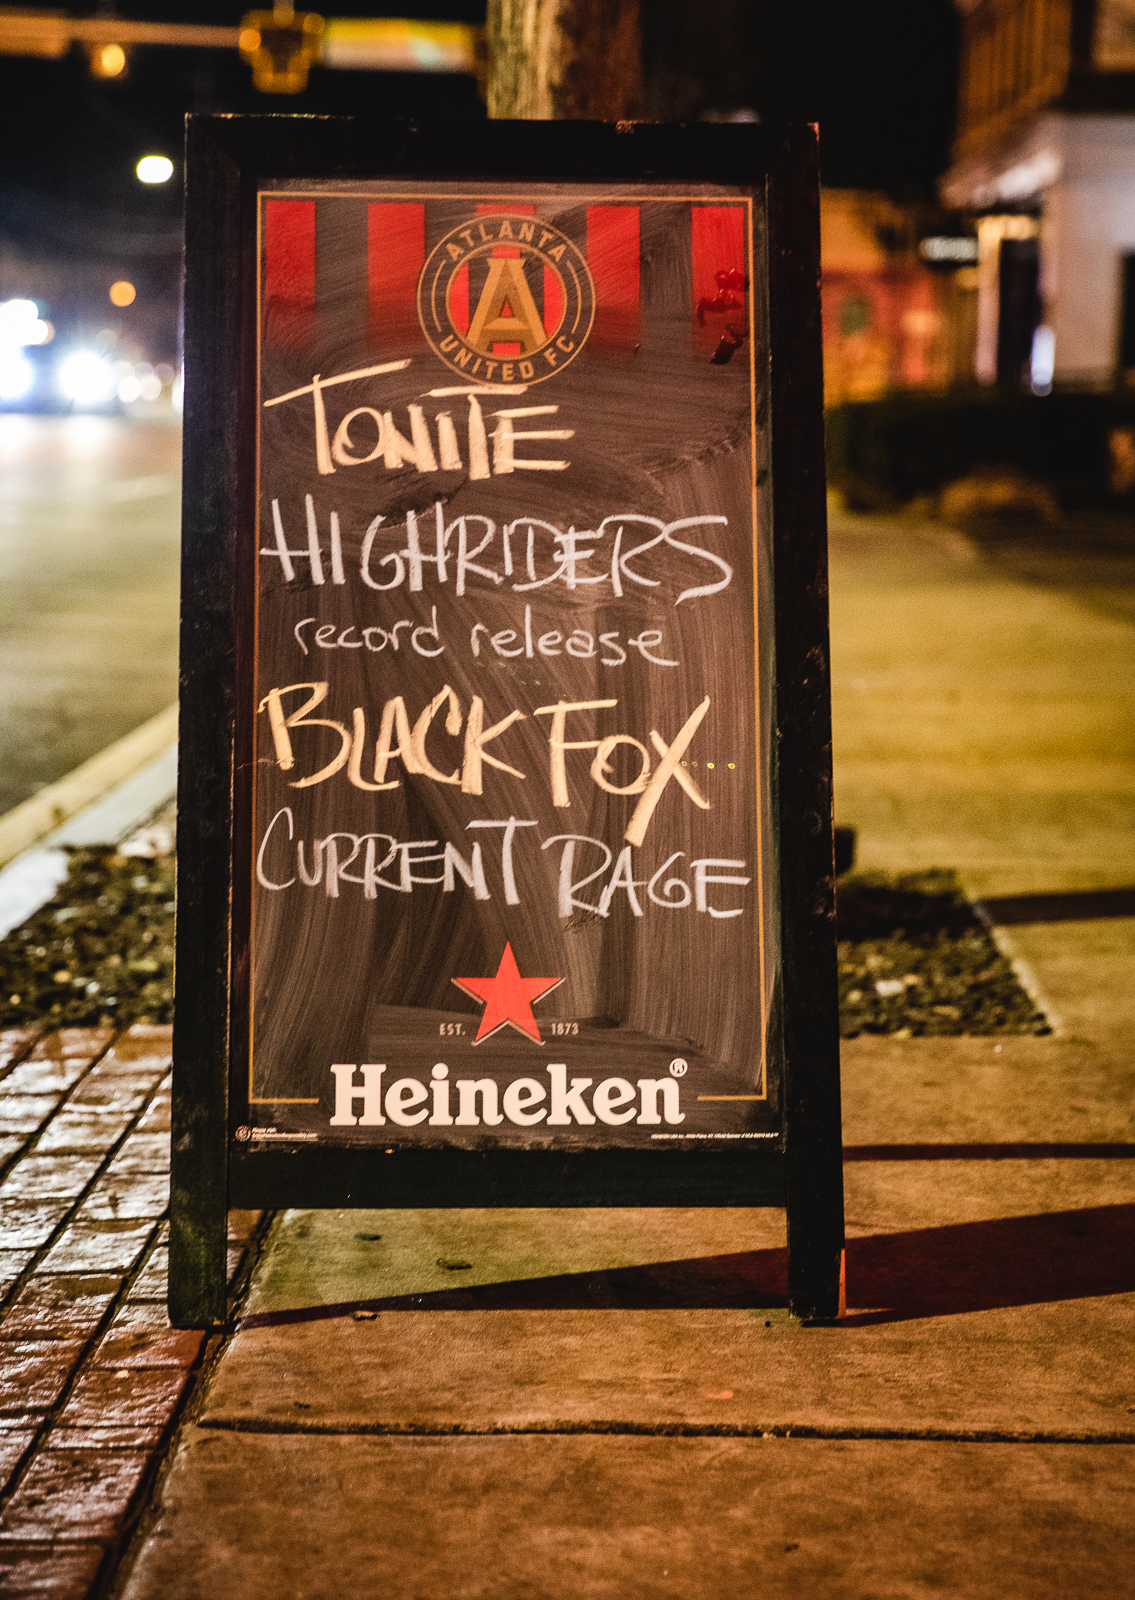 ATLANTA
A
UNITED FC
TONITE
HIGHRIDERS
record release
BLACK FOX
CURRENT RAGE
EST. 1873
Heineken®
Please visit